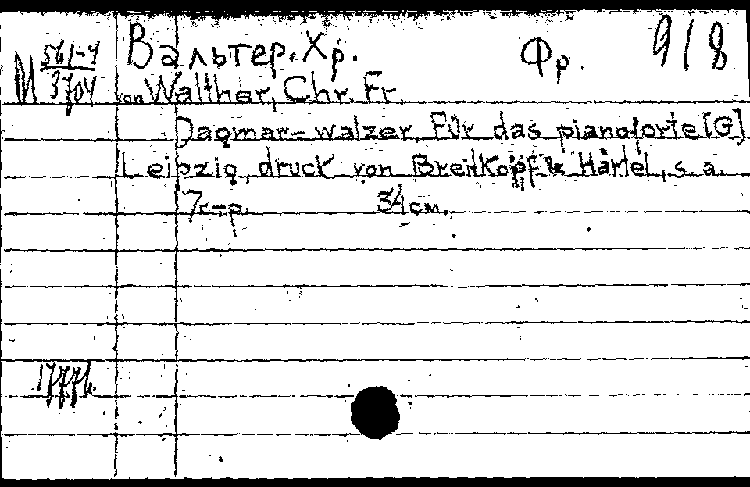 М 561-4/3704 Вальтер, Хр. Фр. 918
Walther, Chr. Fr.
Dagmar-walzer. Für das pianoforte [G]
Leipzig, druck von Breitkopf & Härtel, s. a.
7 с-р. 34 см.